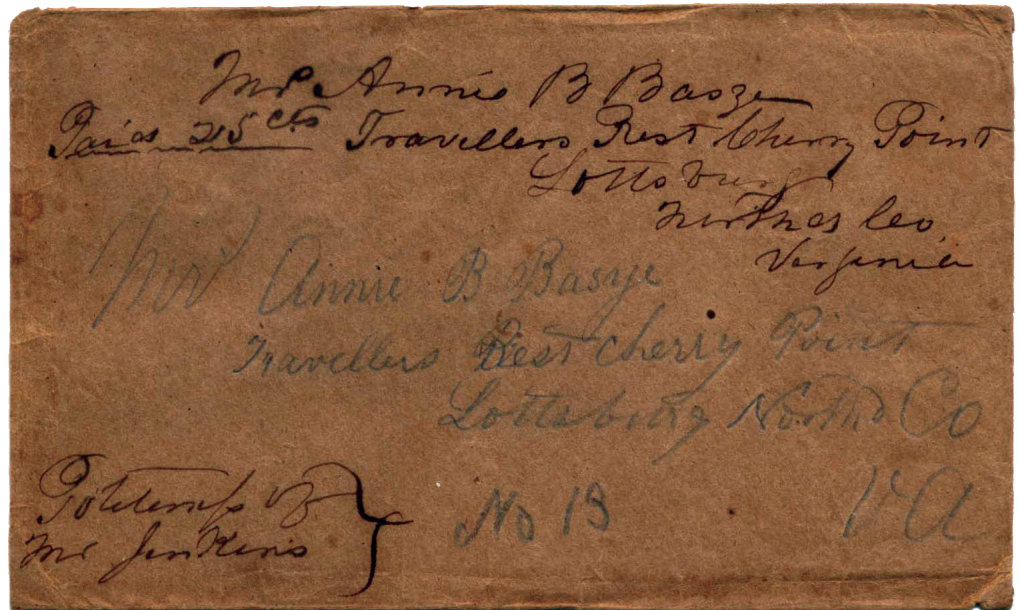 Mrs Annie B Basye
Paid 25 cts Travellers Rest Cherry Point
Lottsburg
North'd Co,
Virginia
Mrs Annie B Basye
Travellers Rest Cherry Point
Lottsburg North'd Co
VA
No 13
Politeness of
Mr Jenkins